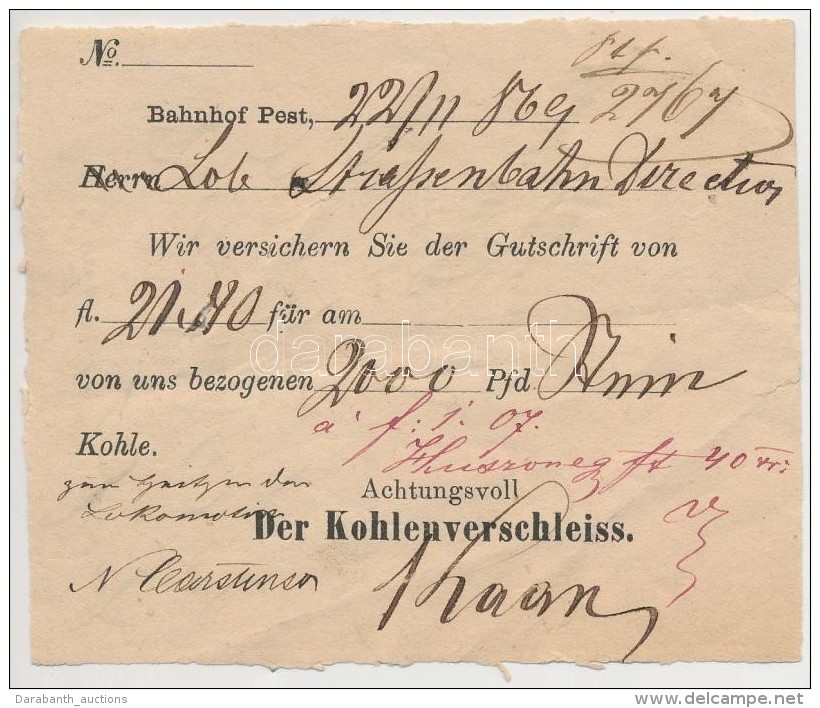 No.
Bahnhof Pest, 22/11 869 2767
Herrn Lob Strassenbahn Direction
Wir versichern Sie der Gutschrift von
fl. 21.40 für am
von uns bezogenen 2000 Pfd
Kohle. á f: 1. 07.
Huszonegy ft 40 xr:
zum heitzen der Achtungsvoll
Lokomotive
Der Kohlenverschleiss.
N Carstensen
darabanth
Darabanth_auctions